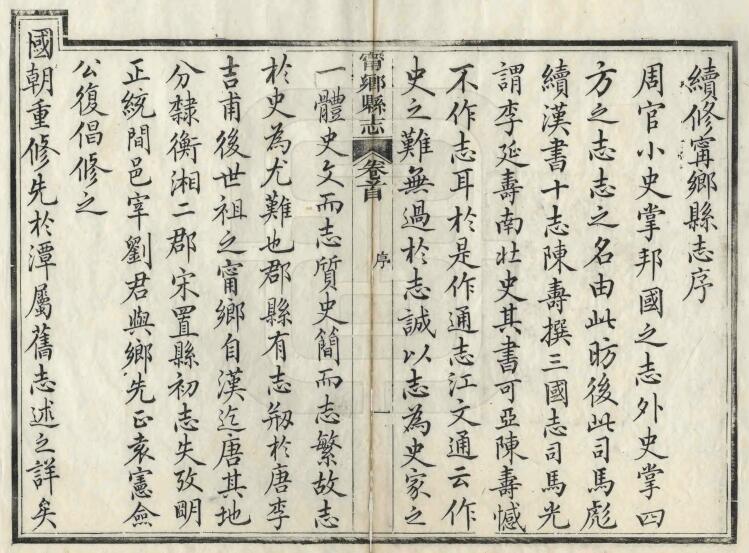 續修甯鄉縣志序
周官小史掌邦國之志外史掌四
方之志志之名由此昉後此司馬彪
續漢書十志陳壽撰三國志司馬光
謂李延壽南北史其書可亞陳壽憾
不作志耳於是作通志江文通云作
史之難無過於志誠以志為史家之
甯鄉縣志
卷首
序
一體史文而志質史簡而志繁故志
於史為尤難也郡縣有志剏於唐李
吉甫後世祖之甯鄉自漢迄唐其地
分隸衡湘二郡宋置縣初志失攷明
正統間邑宰劉君與鄉先正袁憲僉
公復倡修之
國朝重修先於潭屬舊志述之詳矣